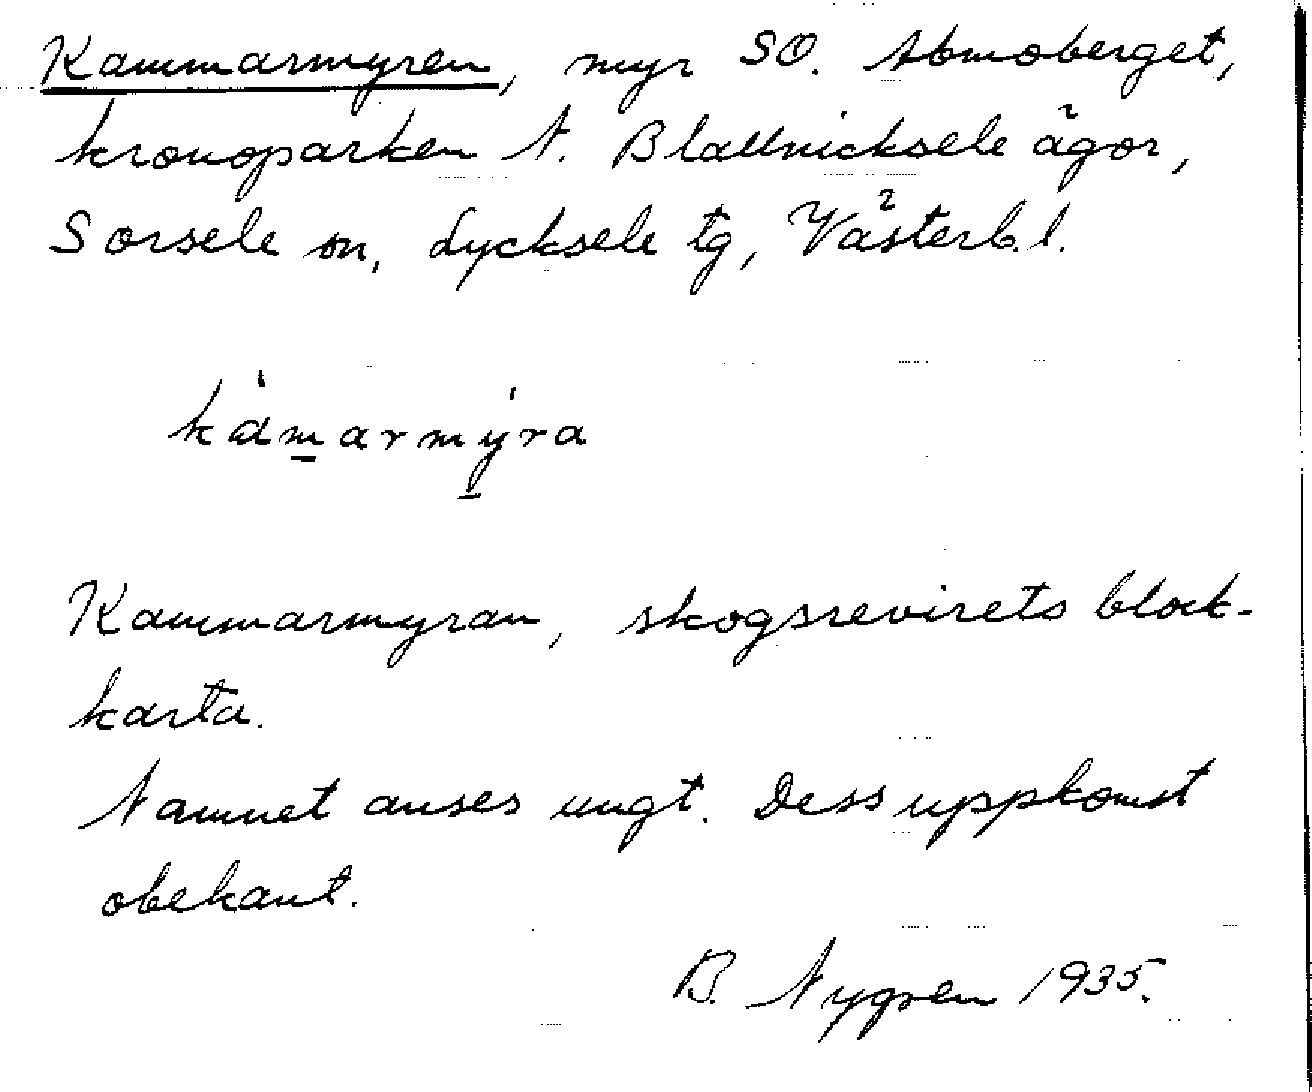 Kammarmyren, myr SO. Abmoberget,
kronoparken N. Blattnicksele ägor,
Sorsele sn, Lycksele tg, Västerb. l.
kámarmýra
Kammarmyran, skogsrevirets block-
karta.
Namnet anses ungt. Dess uppkomst
obekant.
B. Nygren 1935.